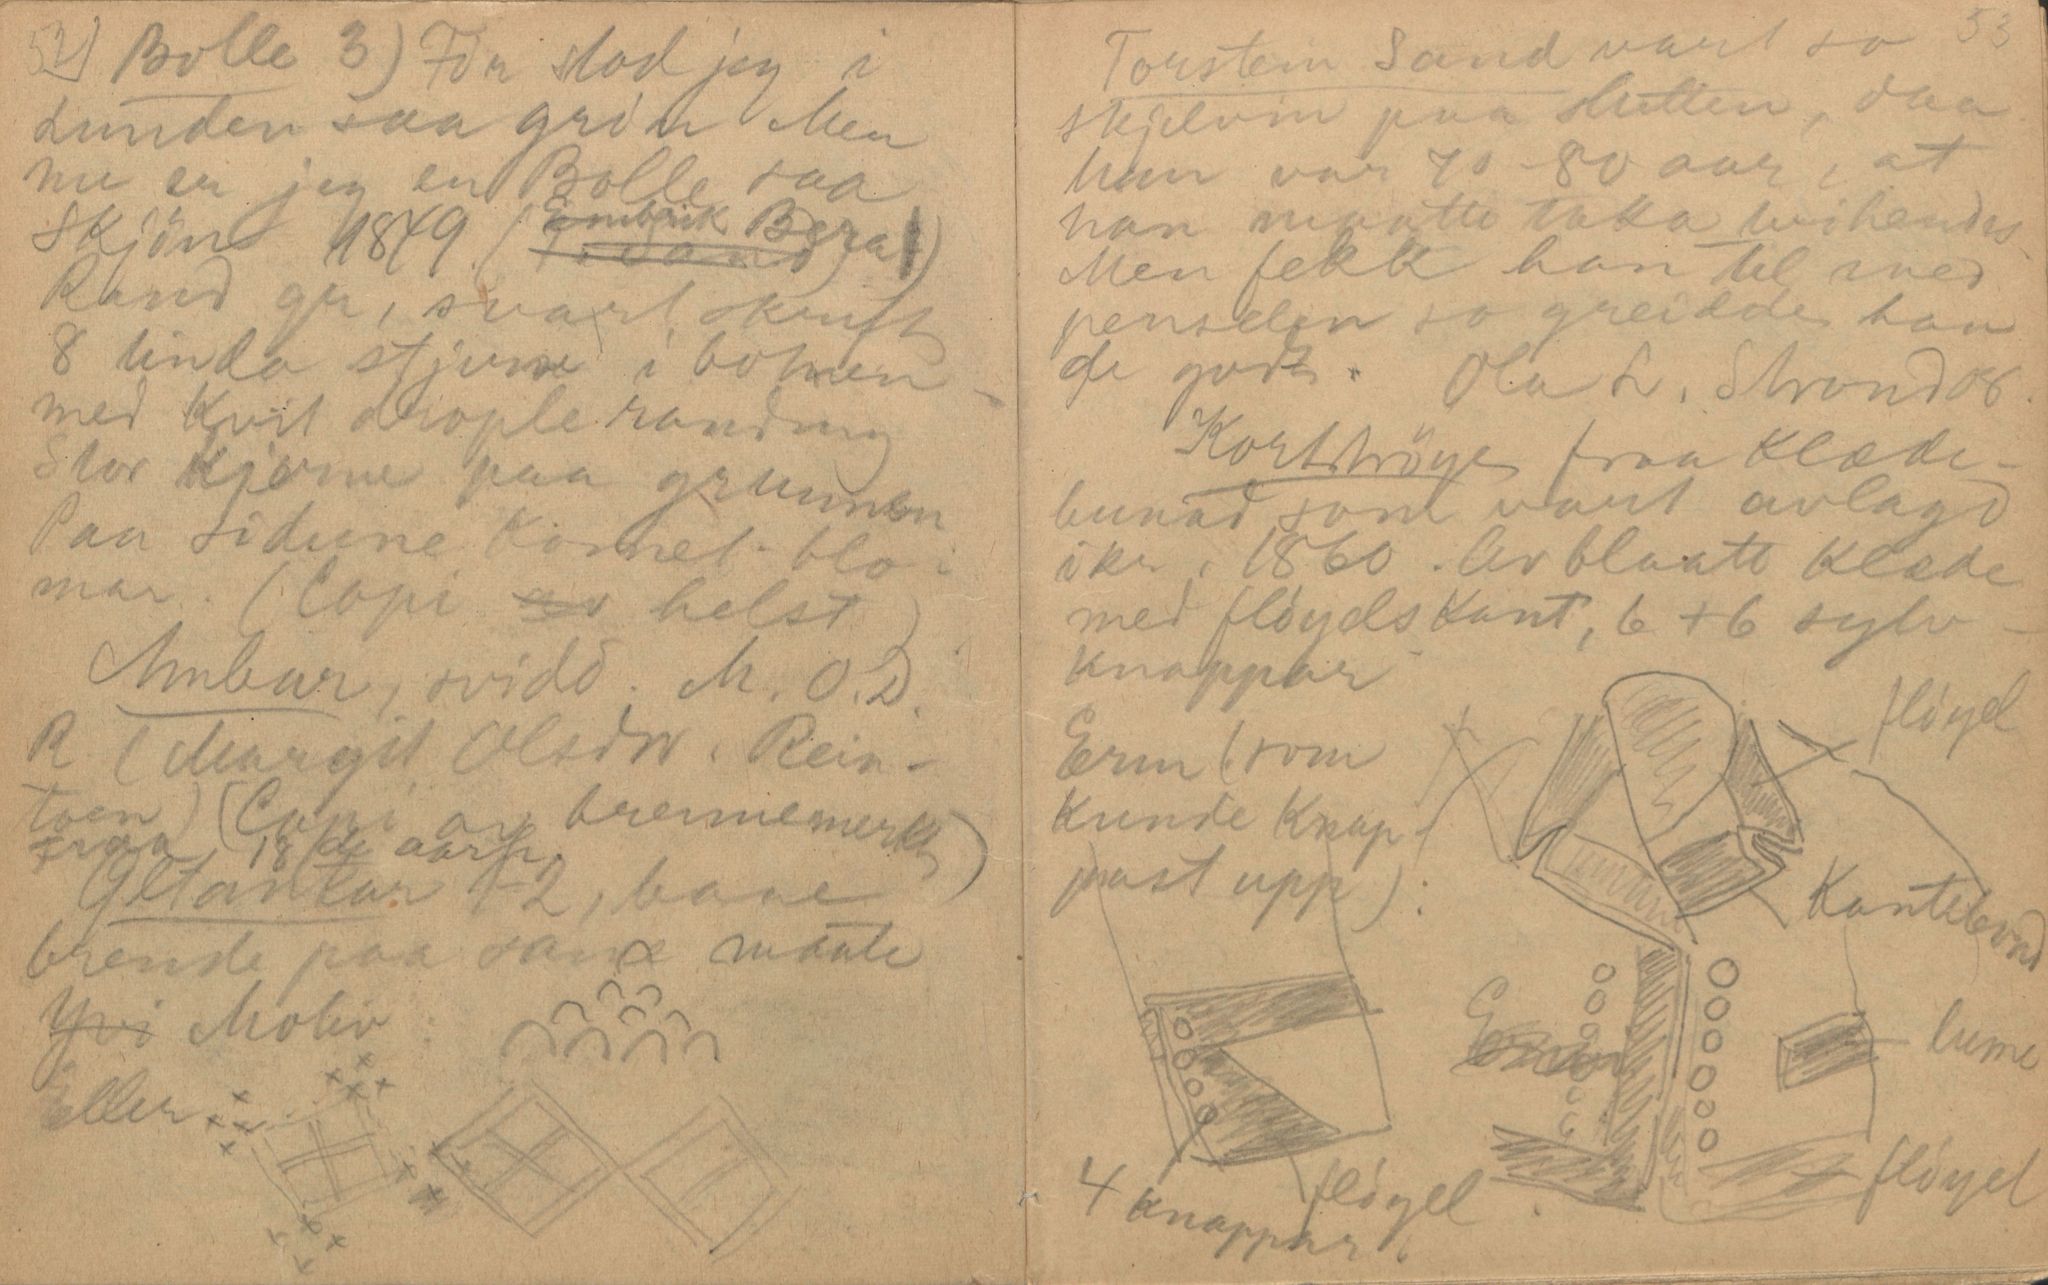 52) Bolle 3) För stod jeg i
Lunden saa grön Men
nu er jeg en Bolle saa
Skjön 1849 ( Bera)
Rand gr, svart skrift
8 linda stjerne i botnen
med kvit randing
Stor kjerne paa grunnen
Paa sidune Kornel-blo-
mar. (Copi helst)
Ambar, svidd. M. O. D.
R (Margit Olsdtr. Rein-
toen) (Copi av brennemerkt)
fraa 18de aarh
Öltankar 1-2, baae
brende paa same maate
Motiv:
Eller
53
Torstein Sand vart so
skjelvin paa slutten, daa
han var 70-80 aar, at
han maatte taka tvihendes
Men fekk han til med
penselen so greidde han
de godt. Ola L. Strond os.
Korttröye fraa Klæde-
bunad som vart avlagd
ikr. 1860. Av blaatt Klæde
med flöyelskant, 6+6 sylv-
knappar
flöyel
Erm (som
kunde knap-
past upp):
Kantebond
lume
4 knappar
flöyel
flöyel